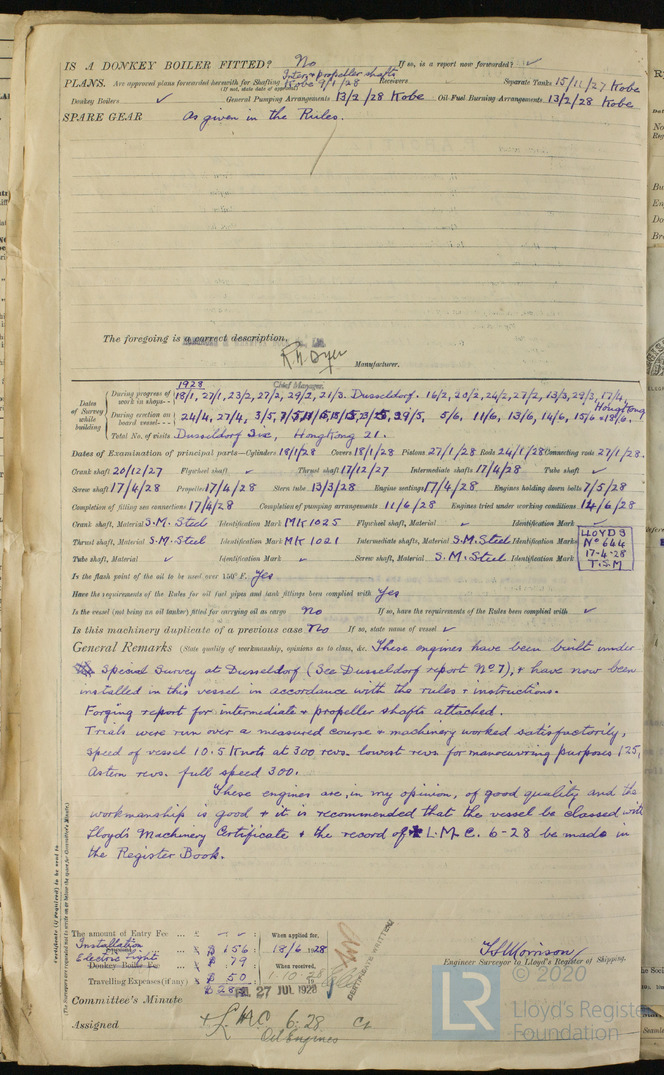 IS A DONKEY BOILER FITTED? No If so, is a report now forwarded? ✓
PLANS. Are approved plans forwarded herewith for Shafting Inter & propeller shafts Kobe 9/1/28 Receivers Separate Tanks 15/11/27 Kobe
(If not, state date of approval)
Donkey Boilers ✓ General Pumping Arrangements 13/2/28 Kobe Oil Fuel Burning Arrangements 13/2/28 Kobe
SPARE GEAR As given in the Rules.
The foregoing is a correct description.
R.M. Dyer Manufacturer.
Chief Manager
1928
Dates of Survey while building
During progress of work in shops - - 18/1, 27/1, 23/2, 27/2, 29/2, 21/3. Dusseldorf. 16/2, 20/2, 24/2, 27/2, 13/3, 29/3, 17/4,
During erection on board vessel - - - 24/4, 27/4, 3/5, 7/5, 11/5, 15/5, 18/5, 23/5, 25/5, 29/5, 5/6, 11/6, 13/6, 14/6, 15/6 & 18/6. Hongkong
Total No. of visits Dusseldorf Six, Hongkong 21.
Dates of Examination of principal parts—Cylinders 18/1/28 Covers 18/1/28 Pistons 27/1/28 Rods 24/1/28 Connecting rods 27/1/28.
Crank shaft 20/12/27 Flywheel shaft ✓ Thrust shaft 17/12/27 Intermediate shafts 17/4/28 Tube shaft ✓
Screw shaft 17/4/28 Propeller 17/4/28 Stern tube 13/3/28 Engine seatings 17/4/28 Engines holding down bolts 7/5/28
Completion of fitting sea connections 17/4/28 Completion of pumping arrangements 11/6/28 Engines tried under working conditions 14/6/28
Crank shaft, Material S.M. Steel Identification Mark MK 1025 Flywheel shaft, Material ✓ Identification Mark ✓
Thrust shaft, Material S.M. Steel Identification Mark MK 1021 Intermediate shafts, Material S.M. Steel Identification Marks
LLOYDS
No 644
17-4-28
T.S.M
Tube shaft, Material ✓ Identification Mark ✓ Screw shaft, Material S.M. Steel Identification Mark
Is the flash point of the oil to be used over 150° F. Yes
Have the requirements of the Rules for oil fuel pipes and tank fittings been complied with Yes
Is the vessel (not being an oil tanker) fitted for carrying oil as cargo No If so, have the requirements of the Rules been complied with ✓
Is this machinery duplicate of a previous case No If so, state name of vessel ✓
General Remarks (State quality of workmanship, opinions as to class, &c. These engines have been built under
Special Survey at Dusseldorf (See Dusseldorf report No 7), & have now been
installed in this vessel in accordance with the rules & instructions.
Forging report for intermediate & propeller shafts attached.
Trials were run over a measured course & machinery worked satisfactorily,
speed of vessel 10.5 Knots at 300 revs. lowest revs for manoeuvring purposes 125,
Astern revs. full speed 300.
These engines are, in my opinion, of good quality and the
workmanship is good & it is recommended that the vessel be classed with
Lloyd's Machinery Certificate & the record of ✠ L.M.C. 6-28 be made in
the Register Book.
The amount of Entry Fee ... £ - ✓ : When applied for,
Installation ... $ 156 : 18/6 1928
Electric Light
Donkey Boiler Fee ... $ 79 : When received,
Travelling Expenses (if any) $ 50 : 1-10-28
CERTIFICATE WRITTEN
T.S. Morrison
Engineer Surveyor to Lloyd's Register of Shipping.
Committee's Minute FRI. 27 JUL 1928
Assigned + LMC 6.28 CL
Oil Engines
© 2020
LR
Lloyd's Register
Foundation